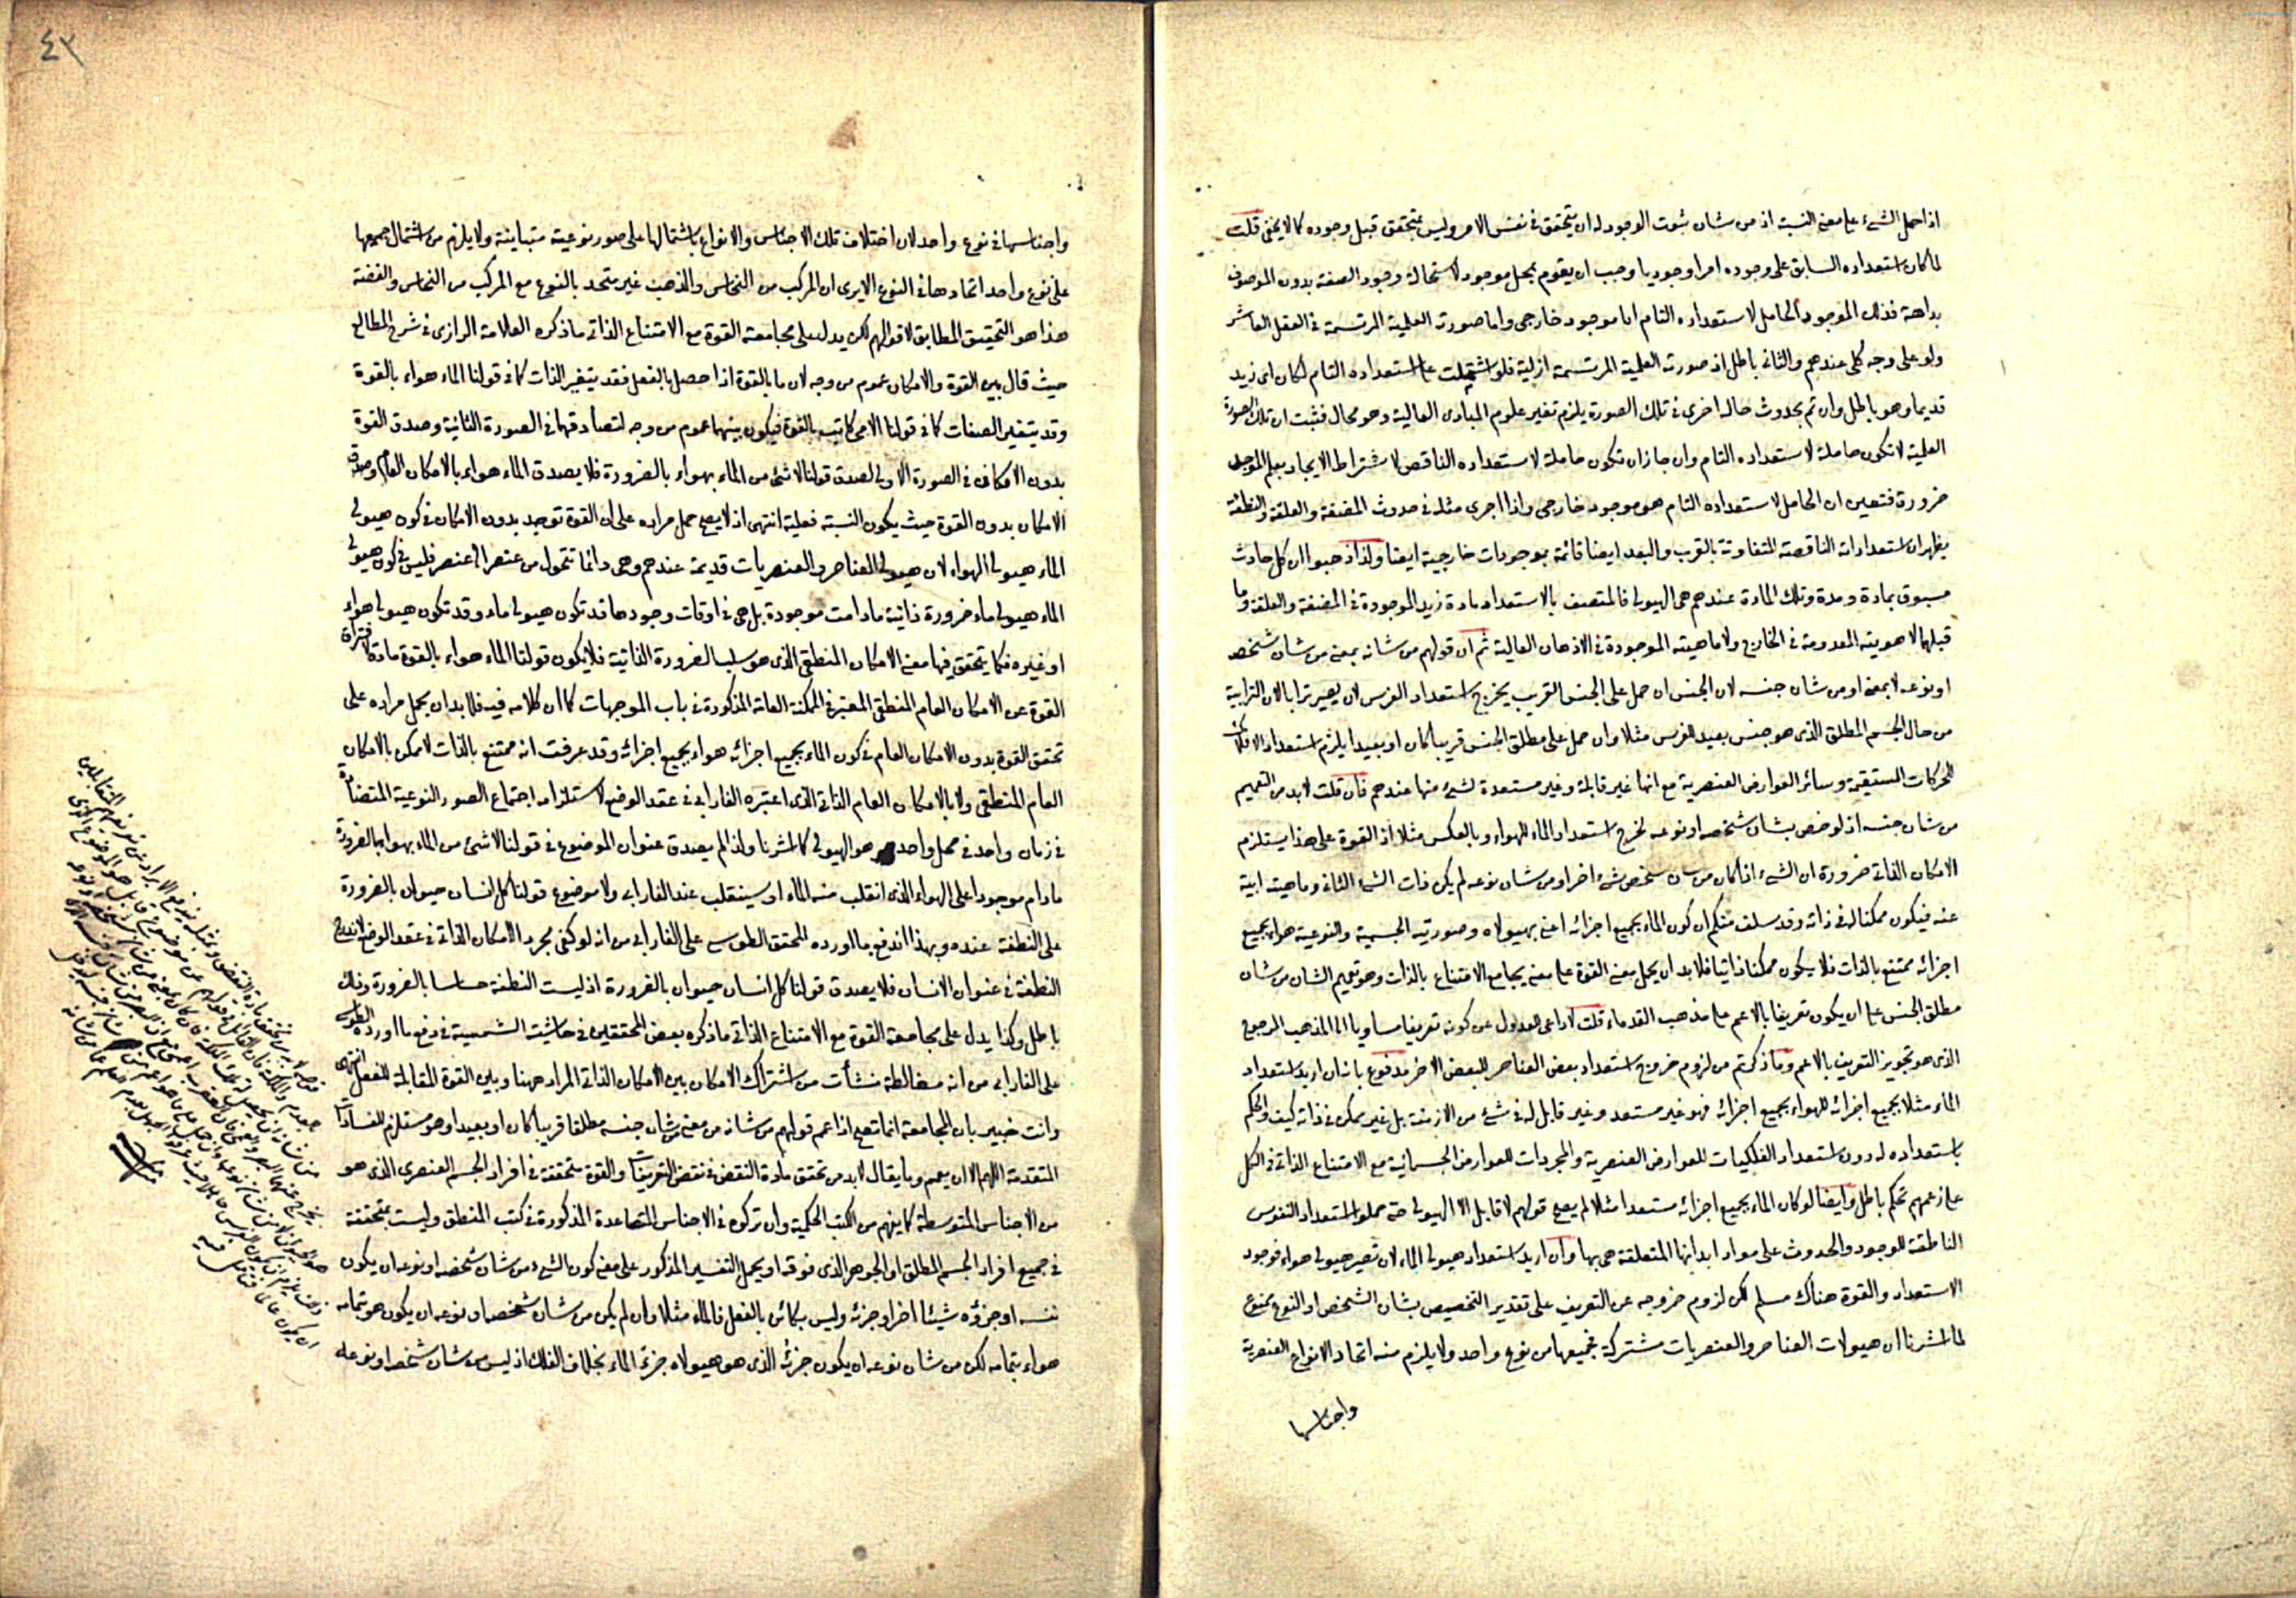 اذا حمل الشيء على معنى النسبة اذ من شان ثبوت الوجود له ان يتحقق في نفس الامر وليس بمتحقق قبل وجوده كما لا يخفى قلت
لما كان استعداده السابق على وجوده امرا وجوديا وجب ان يقوم بمحل موجود لاستحالة وجود الصفة بدون الموصوف
بداهة فذلك الموجود الحامل لاستعداده التام اما موجود خارجي واما صورته العلمية المرتسمة في العقل العاشر
ولو على وجه كلي عندهم والثاني باطل اذ صورته العلمية المرتسمة ازلية فلو اشتملت على استعداده التام لكان اي زيد
قديما وهو باطل وان تم بحدوث حالة اخرى في تلك الصورة يلزم تغير علوم المبادي العالية وهو محال فثبت ان تلك الصورة
العلمية لا تكون حاملة لاستعداده التام وان جاز ان تكون حاملة لاستعداده الناقص لاشتراط الايجاد بعلم الموجد
ضرورة فتعين ان الحامل لاستعداده التام هو موجود خارجي واذا اجري مثله في حدوث المضغة والعلقة والنطفة
يظهر ان استعداداته الناقصة المتفاوتة بالقرب والبعد ايضا قائمة بموجودات خارجية ايضا ولذا ذهبوا الى ان كل حادث
مسبوق بمادة ومدة وتلك المادة عندهم هي الهيولى فالمتصف بالاستعداد مادة زيد الموجودة في المضغة والعلقة وما
قبلهما لا هويته المعدومة في الخارج ولا ماهيته الموجودة في الاذهان العالية ثم ان قولهم من شانه بمعنى من شان شخصه
او نوعه لا بمعنى او من شان جنسه لان الجنس ان حمل على الجنس القريب يخرج استعداد الفرس لان يصير ترابا لان الترابية
من حال الجسم المطلق الذي هو جنس بعيد للفرس مثلا وان حمل على مطلق الجنس قريبا كان او بعيدا يلزم استعداد الافلاك
للحركات المستقيمة وسائر العوارض العنصرية مع انها غير قابلة وغير مستعدة لشيء منها عندهم فان قلت لا بد من التعميم
من شان جنسه اذ لو خص بشان شخصه او نوعه لخرج استعداد الماء للهواء وبالعكس مثلا اذ القوة على هذا يستلزم
الامكان الذاتي ضرورة ان الشيء اذا كان من شان شخص شيء اخر او من شان نوعه لم يكن ذات الشيء الثاني وماهيته ابية
عنه فيكون ممكنا له في ذاته وقد سلف منكم ان كون الماء بجميع اجزائه اعني بهيولاه وصورتيه الجسمية والنوعية هواء بجميع
اجزائه ممتنع بالذات فلا يكون ممكنا ذاتيا فلا بد ان يحمل معنى القوة على معنى يجامع الامتناع بالذات وهو تعميم الشان من شان
مطلق الجنس على ان يكون تعريفا بالاعم على مذهب القدماء قلت لا داعي للعدول عن كونه تعريفا مساويا الى المذهب المرجوح
الذي هو تجويز التعريف بالاعم وما ذكرتم من لزوم خروج استعداد بعض العناصر للبعض الاخر مدفوع بانه ان اريد استعداد
الماء مثلا بجميع اجزائه للهواء بجميع اجزائه فهو غير مستعد وغير قابل له في شيء من الازمنة بل غير ممكن في ذاته كيف والحكم
باستعداده له دون استعداد الفلكيات للعوارض العنصرية والمجردات للعوارض الجسمانية مع الامتناع الذاتي في الكل
على زعمهم تحكم باطل وايضا لو كان الماء بجميع اجزائه مستعدا مثلا لم يصح قولهم لا قابل الا الهيولى حتى حملوا استعداد النفوس
الناطقة للوجود والحدوث على مواد ابدانها المتعلقة هي بها وان اريد استعداد هيولى الماء لان تصير هيولى هواء فوجود
الاستعداد والقوة هناك مسلم لكن لزوم خروجه عن التعريف على تقدير التخصيص بشان الشخص او النوع ممنوع
لما اشرنا ان هيولات العناصر والعنصريات مشتركة بجميعها من نوع واحد ولا يلزم منه اتحاد الانواع العنصرية
واجناسها
٤٢
واجناسها في نوع واحد لان اختلاف تلك الاجناس والانواع باشتمالها على صور نوعية متباينة ولا يلزم من اشتمال جميعها
على نوع واحد اتحادها في النوع الا يرى ان المركب من النحاس والذهب غير متحد بالنوع مع المركب من النحاس والفضة
هذا هو التحقيق المطابق لاقوالهم لكن يدل على مجامعة القوة مع الامتناع الذاتي ما ذكره العلامة الرازي في شرح المطالع
حيث قال بين القوة والامكان عموم من وجه لان ما بالقوة اذا حصل بالفعل فقد يتغير الذات كما في قولنا الماء هواء بالقوة
وقد يتغير الصفات كما في قولنا الامي كاتب بالقوة فيكون بينهما عموم من وجه لتصادقهما في الصورة الثانية وصدق القوة
بدون الامكان في الصورة الاولى لصدق قولنا لا شيء من الماء بهواء بالضرورة فلا يصدق الماء هواء بالامكان العام وصدق
الامكان بدون القوة حيث يكون النسبة فعلية انتهى اذ لا يصح حمل مراده على ان القوة توجد بدون الامكان في كون هيولى
الماء هيولى الهواء لان هيولى العناصر والعنصريات قديمة عندهم وهي دائما تتحول من عنصر الى عنصر فليس في كون هيولى
الماء هيولى ماء ضرورة ذاتية ما دامت موجودة بل هي في اوقات وجودها قد تكون هيولى ماء وقد تكون هيولى هواء
او غيره فكما يتحقق فيها معنى الامكان المنطقي الذي هو سلب الضرورة الذاتية فلا يكون قولنا الماء هواء بالقوة مادة لافتراق
القوة عن الامكان العام المنطقي المعتبر في الممكنة العامة المذكورة في باب الموجهات كما ان كلامه فيه فلا بد ان يحمل مراده على
تحقق القوة بدون الامكان العام في كون الماء بجميع اجزائه هواء بجميع اجزائه وقد عرفت انه ممتنع بالذات لا ممكن بالامكان
العام المنطقي ولا بالامكان العام الذاتي الذي اعتبره الفارابي في عقد الوضع لاستلزامه اجتماع الصور النوعية المتضادة
في زمان واحد في محل واحد هو الهيولى كما اشرنا ولذا لم يصدق عنوان الموضوع في قولنا لا شيء من الماء بهواء بالضرورة
ما دام موجودا على الهواء الذي انقلب منه الماء او سينقلب عند الفارابي ولا موضوع قولنا كل انسان حيوان بالضرورة
على النطفة عنده وبهذا اندفع ما اورده المحقق الطوسي على الفارابي من انه لو كفى مجرد الامكان الذاتي في عقد الوضع لاندرج
النطفة في عنوان الانسان فلا يصدق قولنا كل انسان حيوان بالضرورة اذ ليست النطفة حساسا بالضرورة وذلك
باطل وكذا يدل على مجامعة القوة مع الامتناع الذاتي ما ذكره بعض المحققين في حاشية الشمسية في دفع ما اورده الطوسي
على الفارابي من انه مغالطة نشأت من اشتراك الامكان بين الامكان الذاتي المراد ههنا وبين القوة المقابلة للفعل انتهى
وانت خبير بان المجامعة انما تصح اذا عم قولهم من شانه من معنى من شان جنسه مطلقا قريبا كان او بعيدا وهو مستلزم للفسادات
المتقدمة اللهم الا ان يعمم وما يقال لا بد من تحقق مادة النقض في نقض التعريفات والقوة متحققة في افراد الجسم العنصري الذي هو
من الاجناس المتوسطة كما يفهم من الكتب الحكمية وان تركوه في الاجناس المتصاعدة المذكورة في كتب المنطق وليست بمتحققة
في جميع افراد الجسم المطلق او الجوهر الذي فوقه او يحمل التفسير المذكور على معنى كون الشيء من شان شخصه او نوعه ان يكون
نفسه او جزؤه شيئا اخر او جزئه وليس بكائن بالفعل فالماء مثلا وان لم يكن من شان شخصه او نوعه ان يكون هو بتمامه
هواء بتمامه لكن من شان نوعه ان يكون جزئه الذي هو هيولاه جزء الماء بخلاف الفلك اذ ليس من شان شخصه او نوعه